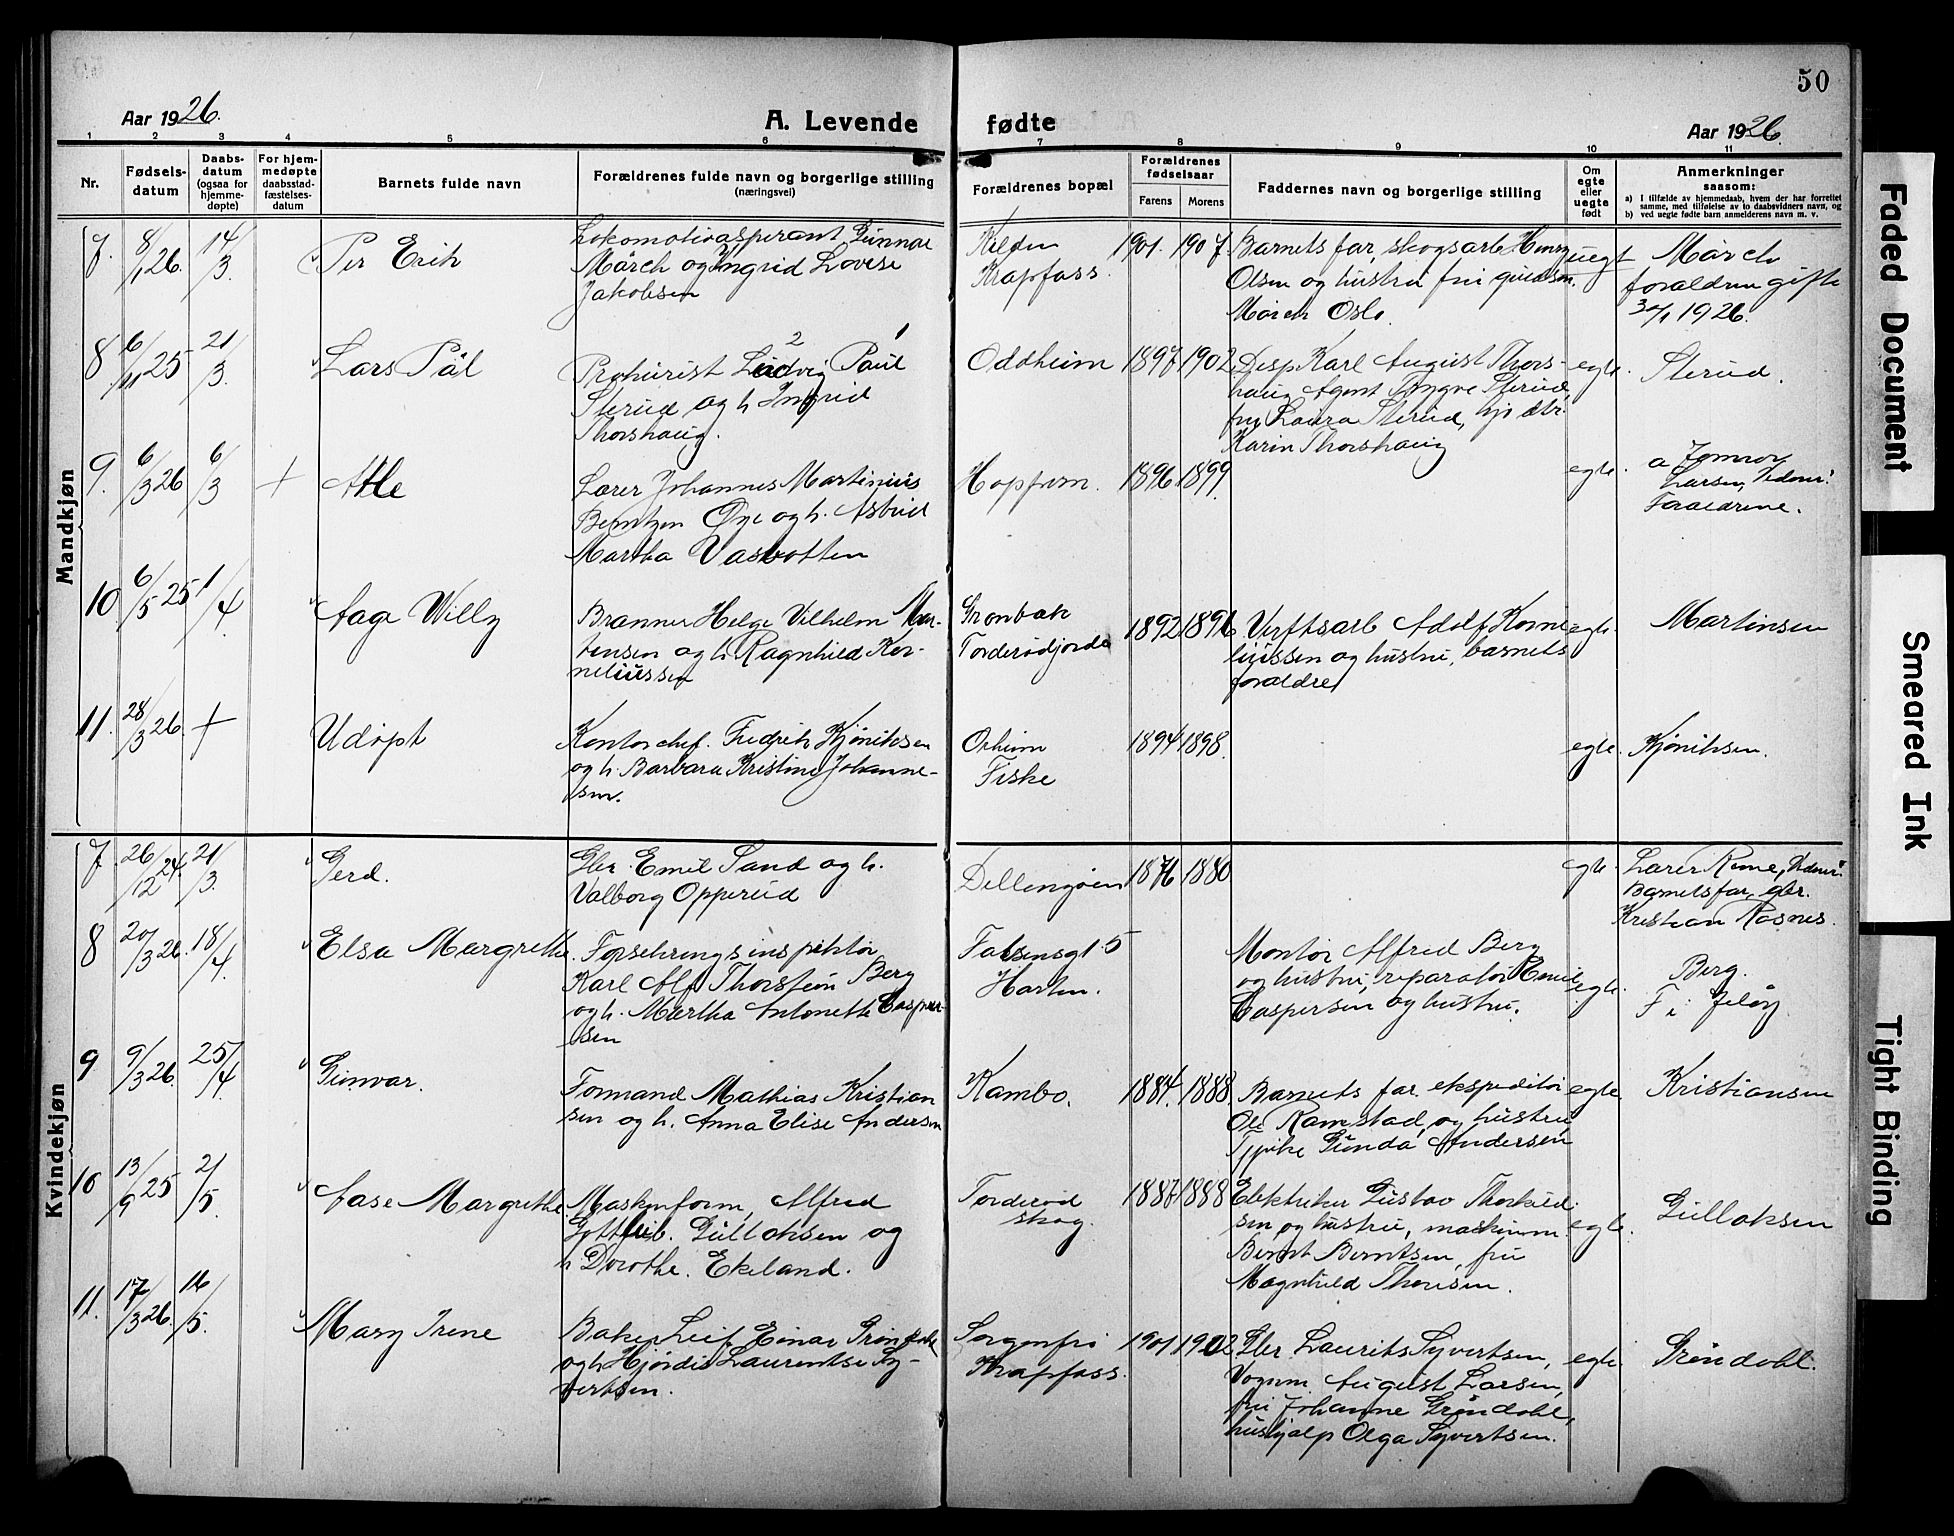 50
Aar 1926.
A. Levende fødte
Aar 1926.
1 2 3 4 5 6 7 8 9 10 11
Nr.
Fødsels-
datum
Daabs-
datum
(ogsaa for
hjemme-
døpte)
For hjem-
medøpte
daabsstad-
fæstelses-
datum
Barnets fulde navn
Forældrenes fulde navn og borgerlige stilling
(næringsvei)
Forældrenes bopæl
Forældrenes
fødselsaar
Farens Morens
Faddernes navn og borgerlige stilling
Om
egte
eller
uegte
født
Anmerkninger
saasom:
a) I tilfælde av hjemmedaab, hvem der har forrettet
samme, med tilføielse av to daabsvidners navn, og
b) ved uegte fødte barn anmelderens navn m. v.
Mandkjøn
7. 8/1 26. 14/3. Per Erik
Lokomotivaspirant Gunnar
Mörch og Ingrid Lovise
Jakobsen
Krapfoss.
1901. 1907.
Barnets far, skogsarb Henry
Olsen og hustru fru
Mörch Oslo.
uegt
Mörch
forældrene gifte
30/1 1926.
8 6/11 25 21/3. Lars Pål
2 1
Prokurist Ludvig Paul
Sterud og h Ingrid
Thorshaug.
Oddheim
1897 1902
Disp Karl August Thors-
haug Agent Trygve Sterud,
fru Laura Sterud,
Karin Thorshaug
egte.
Sterud.
9. 6/3 26 6/3 + Atle
Lærer Johannes Martinius
Berntzen Øye og h. Astrid
Martha Vasbotten
Hoppern.
1896 1899.
egte.
a Jomnor
Larsen, Vidner:
Forældrene.
10 6/5 25 1/4. Aage Willy
Branner Helge Vilhelm Mar-
tinsen og h. Ragnhild Kor-
neliussen
Grønbæk
Torderødjorde
1892 1896
Verftsarb Adolf Korne
liussen og hustru, barnets
forældre
egte.
Martinsen
11. 28/3 26. + Udøpt
Kontorchef. Fredrik Kjöniksen
og h. Barbara Kristine Johanne-
sen.
Orheim
Fiske
1894 1898.
egte.
Kjöniksen.
Kvindekjøn
7. 26/12 24. 21/3. Gerd.
Gbr. Emil Sand og h.
Valborg Opperud
Dillengøien
1876 1880
egte.
Lærer Reme, Vidner:
Barnets far, gbr.
Kristian Rosnes.
8 20/3 26. 18/4. Elsa Margrethe
Forsikringsinspektør
Karl Alf Thorstein Berg
og h. Martha Antonette Casper-
sen
Falsensgt 5
Horten.
Montör Alfred Berg
og hustru, reparatör Emil
Caspersen og hustru.
egte.
Berg.
F i Jelöy
9 9/3 26. 25/4 Gunvar.
Formand Mathias Kristian
sen og h. Anna Elise Andersen
Kambo.
1884. 1888
Barnets far. ekspeditør
Ole Ramstad og hustru
Tjpike Gunda Andersen
egte
Kristiansen
10 13/9 25 2/5. Aase Margrethe
Maskinform, Alfred
Gottlieb. Gulloksen og
h Dorothe. Ekeland.
Torderød
skog.
1887 1888
Elektriker Gustav Thorkild
sen og hustru, maskinm.
Bernt Berntsen, fru
Magnhild Thorisen.
egte.
Gulloksen
11. 17/3 26. 16/5. Mary Irene
Baker Leif Einar Gröndahl
og h Hjördis Laurentse Sy-
vertsen.
Sorgenfri
Krapfoss.
1901 1902
Gbr Laurits Syvertsen,
Vognm. August Larsen,
fru Johanne Gröndahl,
hushjælp Olga Syvertsen.
egte.
Gröndahl.
Faded Document
Smeared Ink
Tight Binding